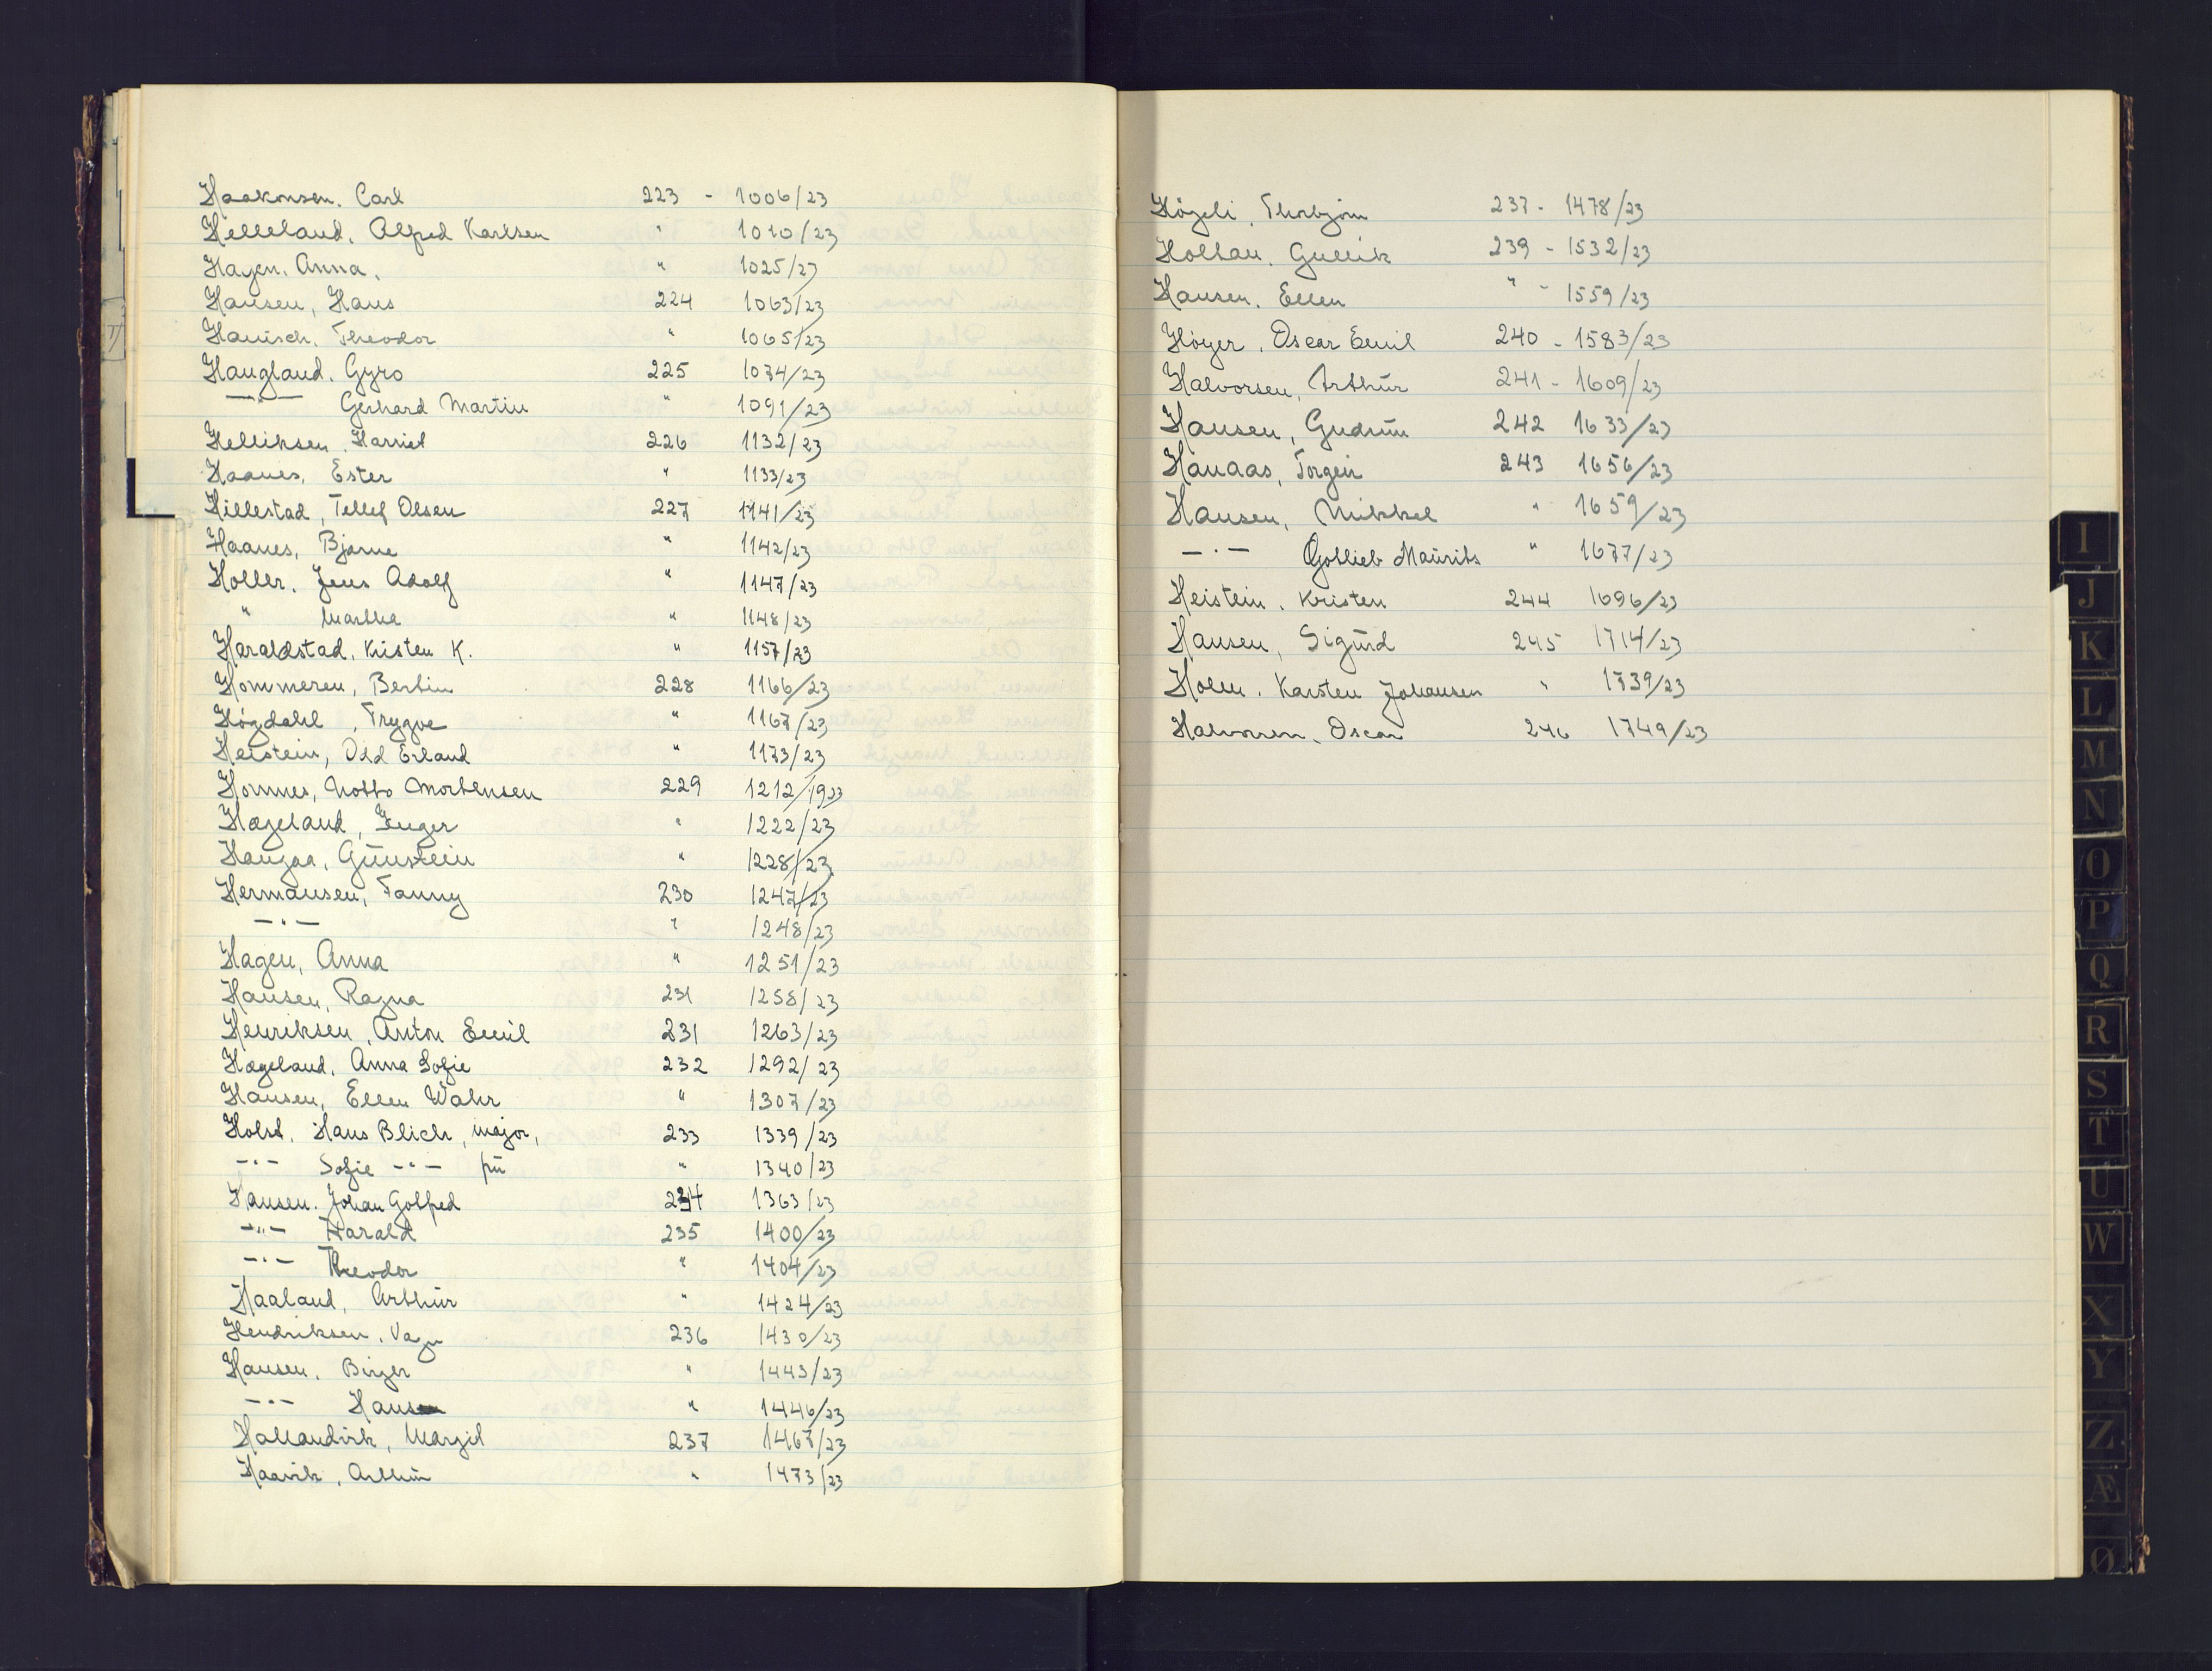 Haakonsen. Carl 223 - 1006/23
Helleland, Alfred Karlsen " 1010/23
Hagen. Anna. " 1025/23
Hansen, Hans 224 1063/23
Hanisch. Theodor " 1065/23
Haugland. Gyro 225 1074/23
—"— Gerhard Martin " 1091/23
Helliksen. Harriet 226 1132/23
Haanes, Ester " 1133/23
Hillestad, Tellef Olsen 227 1141/23
Haanes, Bjarne " 1142/23
Holler. Jens Adolf " 1147/23
" Martha " 1148/23
Haraldstad, Kristen K. " 1157/23
Hommeren, Bertin 228 1166/23
Høgdahl, Trygve " 1167/23
Heistein, Odd Erland " 1173/23
Hornnes, Notto Mortensen 229 1212/1923
Hægeland, Inger " 1222/23
Haugaa, Gunstein " 1228/23
Hermansen, Fanny 230 1247/23
—"— " 1248/23
Hagen, Anna " 1251/23
Hansen, Ragna 231 1258/23
Henriksen, Anton Emil 231 1263/23
Hægeland, Anna Sofie 232 1292/23
Hansen, Ellen Wahr " 1307/23
Holst, Hans Blich, major, 233 1339/23
—"— Sofie —"— frü " 1340/23
Hansen. Johan Gotfred 234 1363/23
—"— Harald 235 1400/23
—"— Theodor " 1404/23
Haaland, Arthur " 1424/23
Hendriksen, Vagn 236 1430/23
Hansen. Birger " 1443/23
—"— Hans " 1446/23
Hallandvik, Margit 237 1467/23
Haavik, Arthur " 1473/23
Høgeli, Thorbjørn 237 - 1478/23
Holtan, Gullik 239 - 1532/23
Hansen. Ellen " - 1559/23
Høyer, Oscar Emil 240 - 1583/23
Halvorsen, Arthur 241 - 1609/23
Hansen, Gudrun 242 1633/23
Hanaas, Torgeir 243 1656/23
Hansen, Mikkel " 1659/23
—"— Gotlieb Maurits " 1677/23
Heistein, Kristen 244 1696/23
Hansen, Sigurd 245 1714/23
Holm. Karsten Johansen " 1739/23
Halvorsen, Oscar 246 1749/23
I
J
K
L
M
N
O
P
Q
R
S
T
U
W
X
Y
Z
Æ
Ø